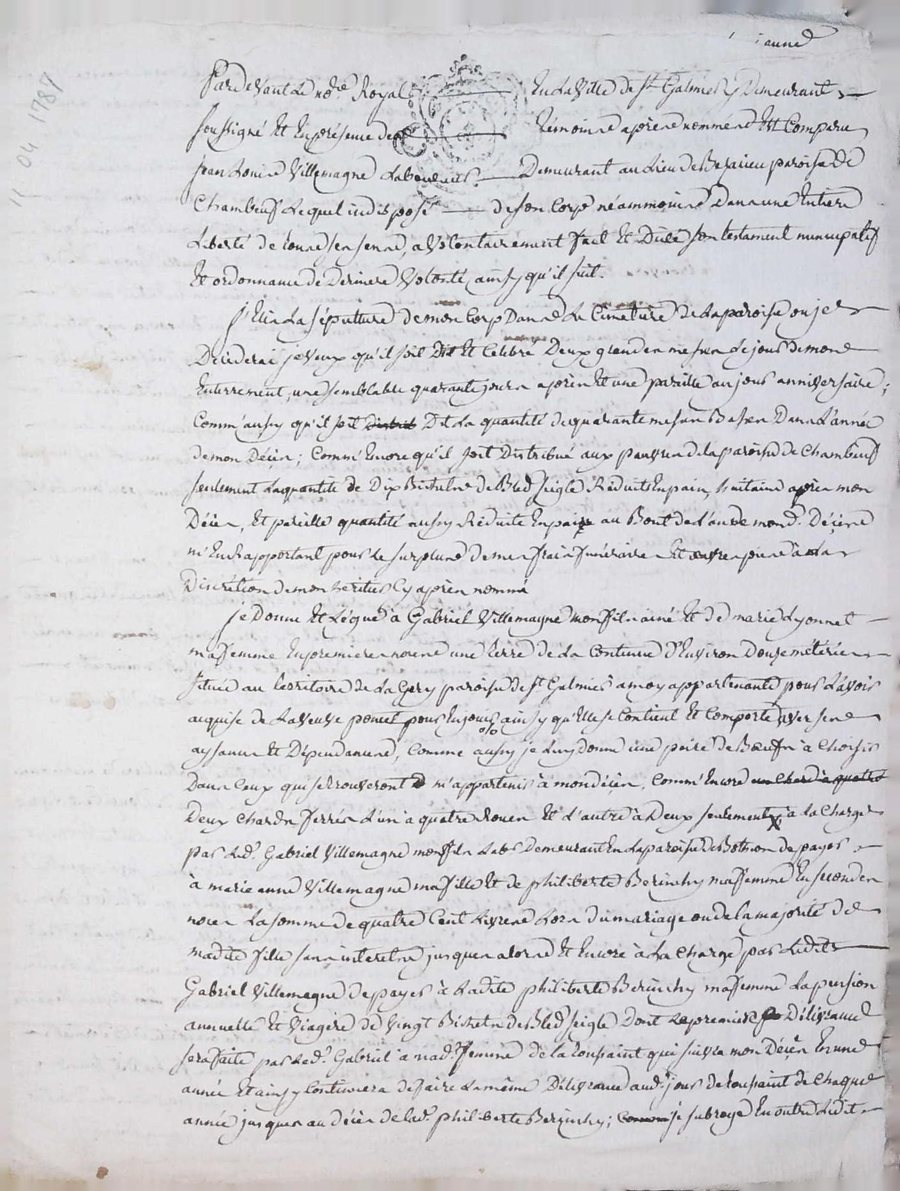 11 04 1787
Pardevant le nore Royal En la ville de St Galmier y Demeurant
soussigné Et En présence des témoins après nommés Est Comparu
Jean Louis Villemagne Laboureur Demeurant au Lieu de paroisse de
Chambeuf Lequel indisposé de son Corps néammoins Dans une Entiere
Liberté de tous ses sens, a volontairement fait Et Dicté son testament nuncupatif
Et ordonnance de Derniere volonté ainsy qu'il suit.
j'Elis La sépulture de mon Corps Dans Le Cimetiere de La paroisse ou je
Decederai je veux qu'il soit Dit Et Célébré Deux grandes messes Le jour de mon
Enterrement, une semblable quarante jours après Et une pareille au jour anniversaire;
Comm'aussy qu'il soit Dit La quantité de quarante messes Basses Dans L'année
de mon Décès; Comm'Encore qu'il soit Distribué aux pauvres de la paroisse de Chambeuf
seulement La quantité de Dix Bichets de Bled seigle Réduit En pain, huitaine après mon
Décès, Et pareille quantité aussy Réduite En pain au Bout de l'an de mond. Décès
m'En Rapportant pour Le surplus de mes frais funéraires Et à La
Discrétion de mon héritier Cy après nommé
je Donne Et Lègue à Gabriel Villemagne mon fils ainé Et de marie Lyonnet
ma femme En premiere noces une terre de La Contenue d'Environ Douse métériers
située au territoire de La paroisse de St Galmier à moy appartenante pour L'avoir
acquise de La veuve poncet pour En jouir ainsy qu'Elle se Contient Et Comporte avec ses
aysances Et Dépendances, Comme aussy je Luy Donne une paire de Bœufs à Choisir
Dans Ceux qui se trouveront m'appartenir à mon décès, Comm'Encore un Char à quatre
Deux Chards ferrés L'un à quatre Roues Et l'autre à Deux seulement, à la Charge
par Led. Gabriel Villemagne mon fils Labr Demeurant En La paroisse de Bothéon de payer
à marie anne Villemagne ma fille Et de philiberte Berinchy ma femme En secondes
noces La somme de quatre Cent Livres Lors du mariage ou de la majorité de
madite fille sans intérêts jusques alors Et Encore à La Charge par Ledit
Gabriel Villemagne de payer à Ladite philiberte Berinchy ma femme La pension
annuelle Et Viagère de Vingt Bichets de Bled seigle Dont La premiere Délivrance
sera faite par Led. Gabriel à mad. femme de la toussaint qui suivra mon Décès En une
année Et ainsy Continuera de faire La même Délivrance aud. jour de toussaint de Chaque
année jusques au décès de lad. philiberte Berinchy; je subroge En outre Ledit